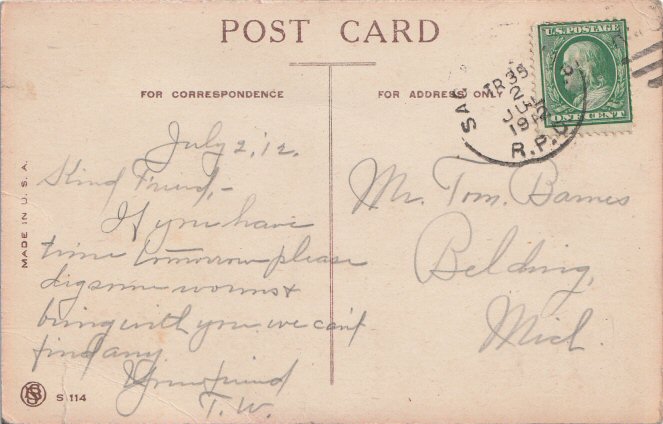 POST CARD
FOR CORRESPONDENCE
FOR ADDRESS ONLY
U.S. POSTAGE
ONE CENT
SAG
TR 35
2
JUL
1912
R.P.O.
MADE IN U.S.A.
July 2, 12.
Kind Friend,-
If you have
time tomorrow please
dig some worms &
bring with you we can't
find any
Your friend
T. W.
Mr. Tom. Barnes
Belding,
Mich.
S 114